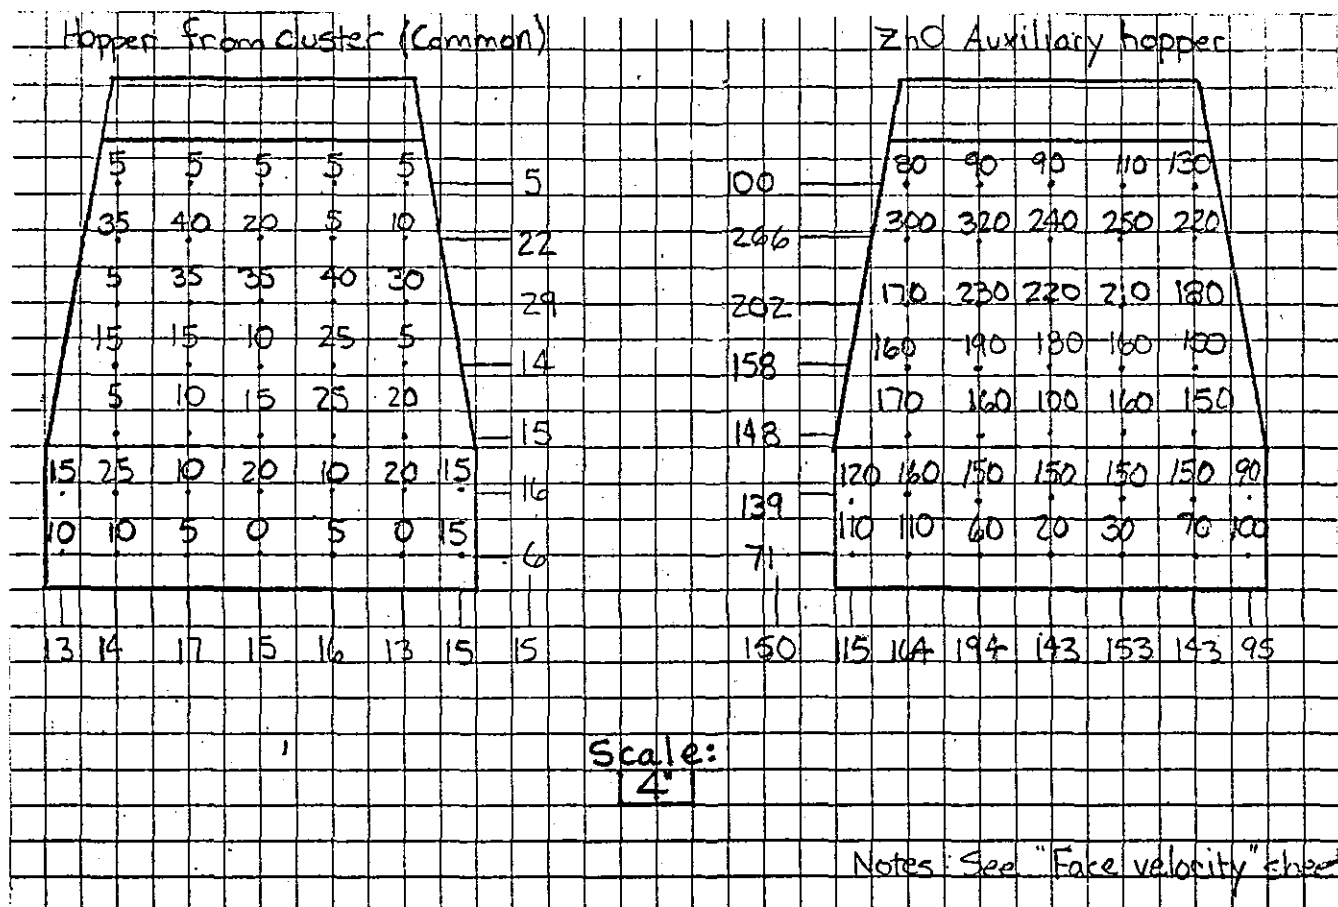 Hopper from cluster (Common)
ZnO Auxiliary hopper
5 5 5 5 5 5
35 40 20 5 10 22
5 35 35 40 30 29
15 15 10 25 5 14
5 10 15 25 20 15
15 25 10 20 10 20 15 16
10 10 5 0 5 0 15 6
13 14 17 15 16 13 15 15
100 80 90 90 110 130
266 300 320 240 250 220
202 170 230 220 210 180
158 160 190 180 160 100
148 170 160 100 160 150
139 120 160 150 150 150 150 90
71 110 110 60 20 30 70 100
150 115 164 194 143 153 143 95
Scale:
4"
Notes: See "Face velocity" shee